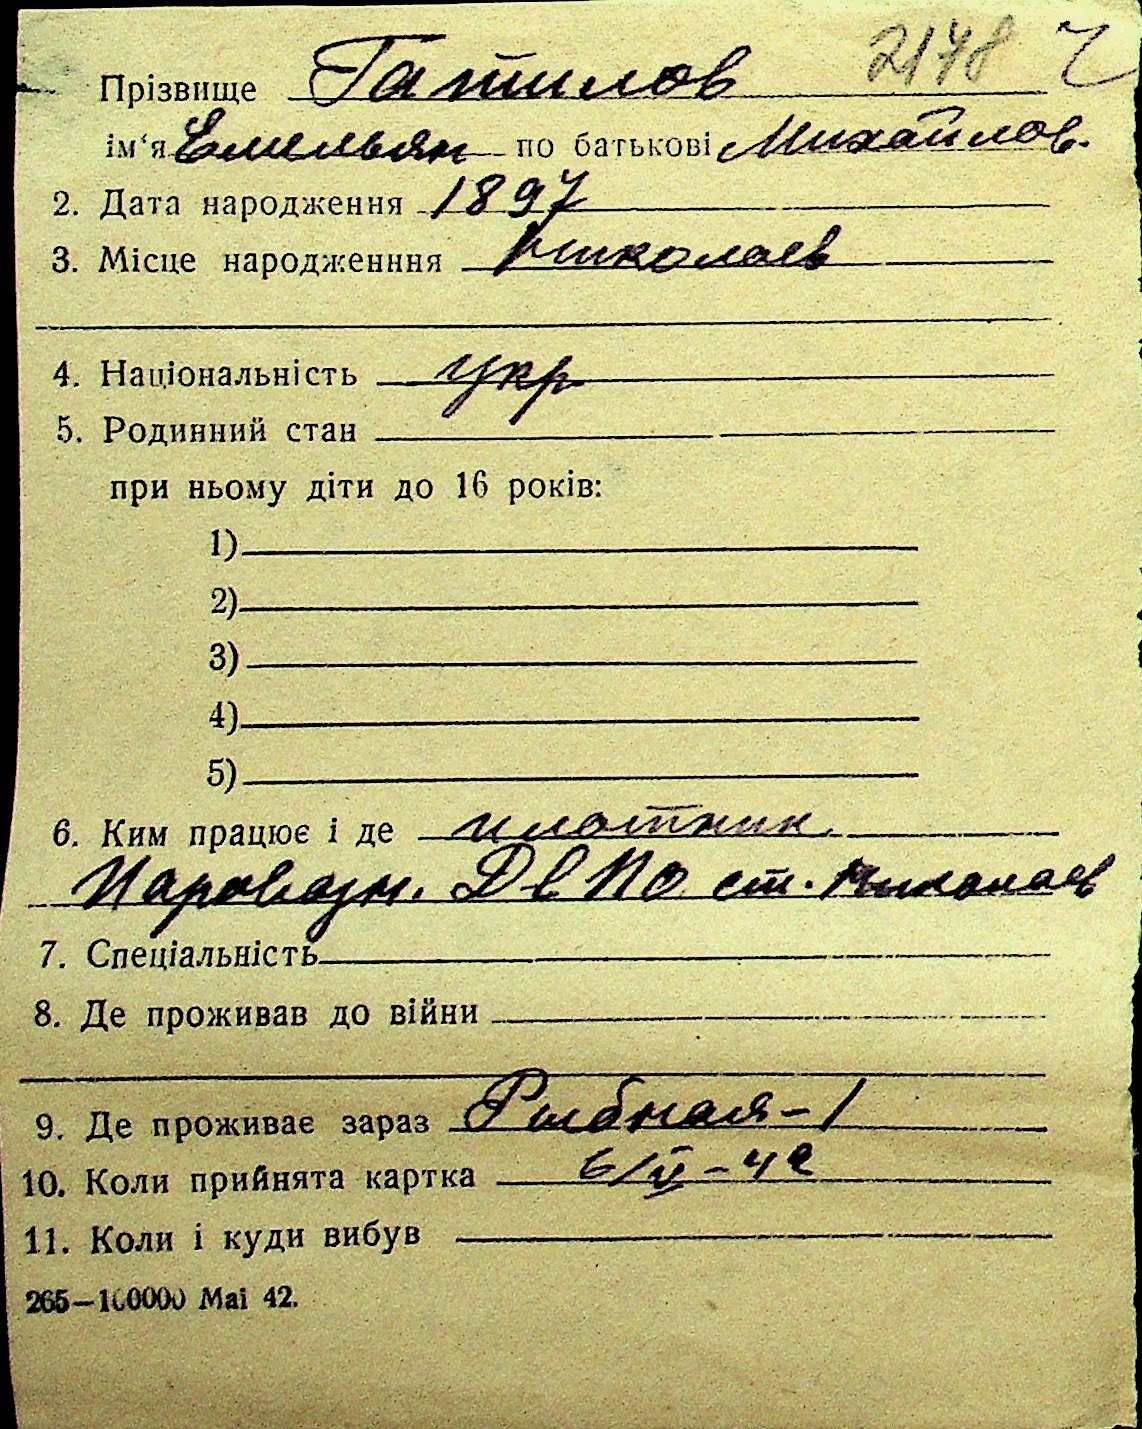 2178 Ч
Прізвище Гатилов
ім‘я Емельян по батькові Михайлов.
2. Дата народження 1897
3. Місце народженння Николаев
4. Національність укр
5. Родинний стан
при ньому діти до 16 років:
1)
2)
3)
4)
5)
6. Ким працює і де плотник
Паровозн. Депо ст. Николаев
7. Спеціальність
8. Де проживав до війни
9. Де проживає зараз Рыбная-1
10. Коли прийнята картка 6/V-42
11. Коли і куди вибув
265—100000 Mai 42.